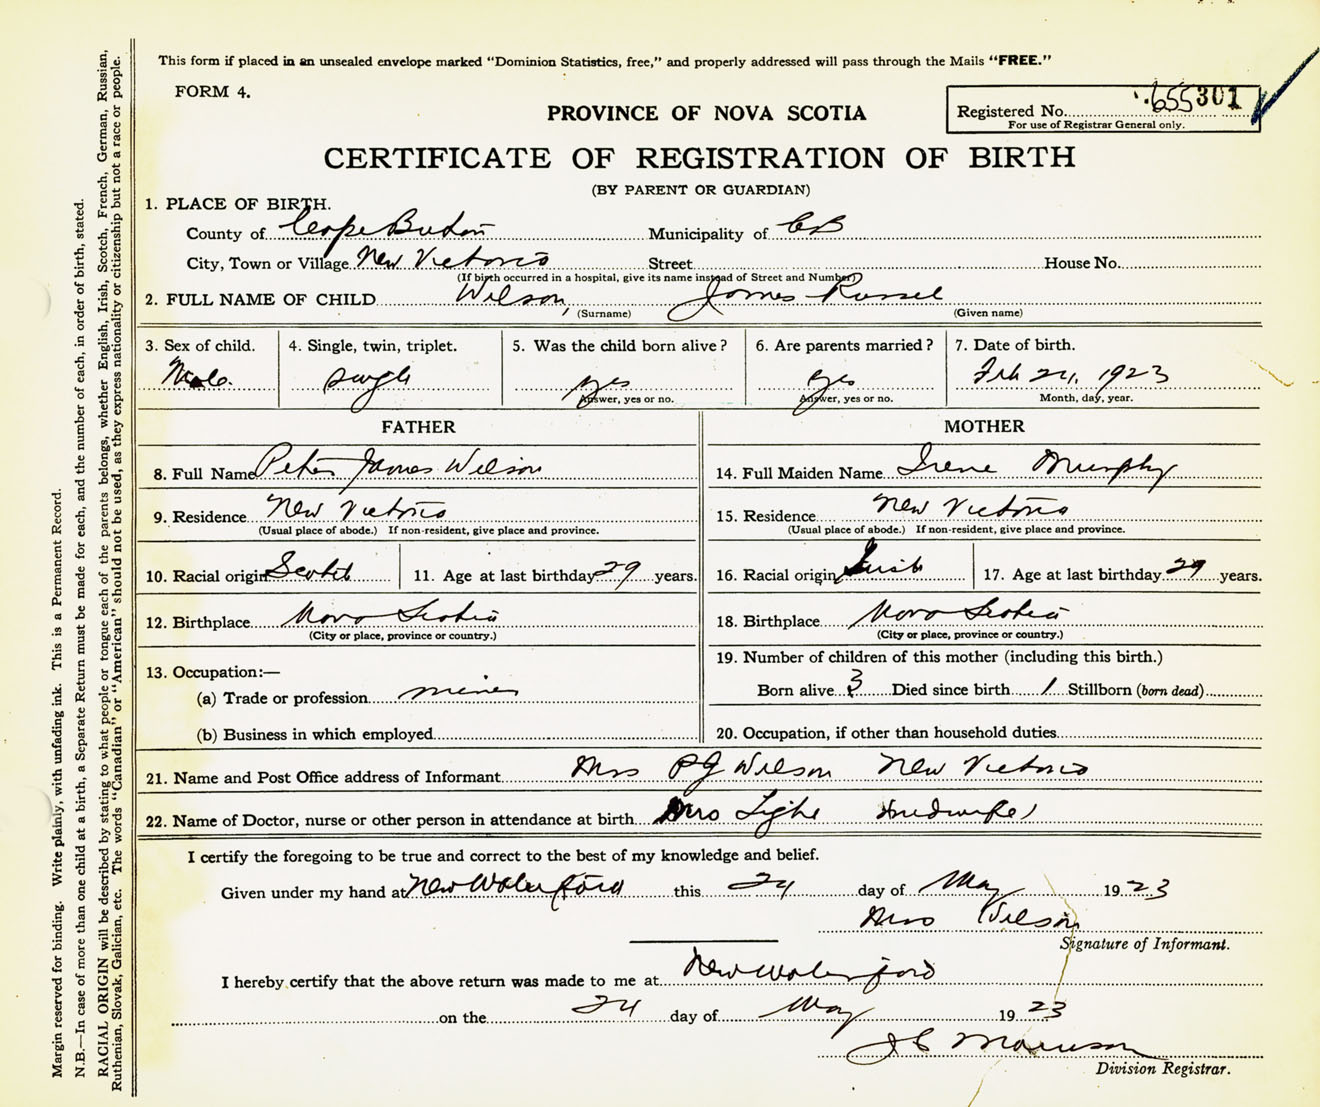 This form if placed in an unsealed envelope marked "Dominion Statistics, free," and properly addressed will pass through the Mails "FREE."
FORM 4.
PROVINCE OF NOVA SCOTIA
Registered No. 655301
For use of Registrar General only.
CERTIFICATE OF REGISTRATION OF BIRTH
(BY PARENT OR GUARDIAN)
1. PLACE OF BIRTH.
County of Cape Breton Municipality of CB
City, Town or Village New Victoria Street House No.
(If birth occurred in a hospital, give its name instead of Street and Number)
2. FULL NAME OF CHILD Wilson, James Russel
(Surname) (Given name)
3. Sex of child. 4. Single, twin, triplet. 5. Was the child born alive? 6. Are parents married? 7. Date of birth.
Male. single yes yes Feb 24, 1923
Answer, yes or no. Answer, yes or no. Month, day, year.
FATHER MOTHER
8. Full Name Peter James Wilson 14. Full Maiden Name Irene Murphy
9. Residence New Victoria 15. Residence New Victoria
(Usual place of abode.) If non-resident, give place and province. (Usual place of abode.) If non-resident, give place and province.
10. Racial origin Scotch 11. Age at last birthday 29 years. 16. Racial origin Irish 17. Age at last birthday 29 years.
12. Birthplace Nova Scotia 18. Birthplace Nova Scotia
(City or place, province or country.) (City or place, province or country.)
13. Occupation:— 19. Number of children of this mother (including this birth.)
(a) Trade or profession miner Born alive 3 Died since birth 1 Stillborn (born dead)
(b) Business in which employed 20. Occupation, if other than household duties
21. Name and Post Office address of Informant Mrs PJ Wilson New Victoria
22. Name of Doctor, nurse or other person in attendance at birth Mrs (midwife)
I certify the foregoing to be true and correct to the best of my knowledge and belief.
Given under my hand at New Waterford this 24 day of May 1923
Mrs Wilson
Signature of Informant.
I hereby certify that the above return was made to me at New Waterford
on the 24 day of May 1923
J C Morrison
Division Registrar.
Margin reserved for binding. Write plainly, with unfading ink. This is a Permanent Record.
N.B.—In case of more than one child at a birth, a Separate Return must be made for each, and the number of each, in order of birth, stated.
RACIAL ORIGIN will be described by stating to what people or tongue each of the parents belongs, whether English, Irish, Scotch, French, German, Russian,
Ruthenian, Slovak, Galician, etc. The words "Canadian" or "American" should not be used, as they express nationality or citizenship but not a race or people.